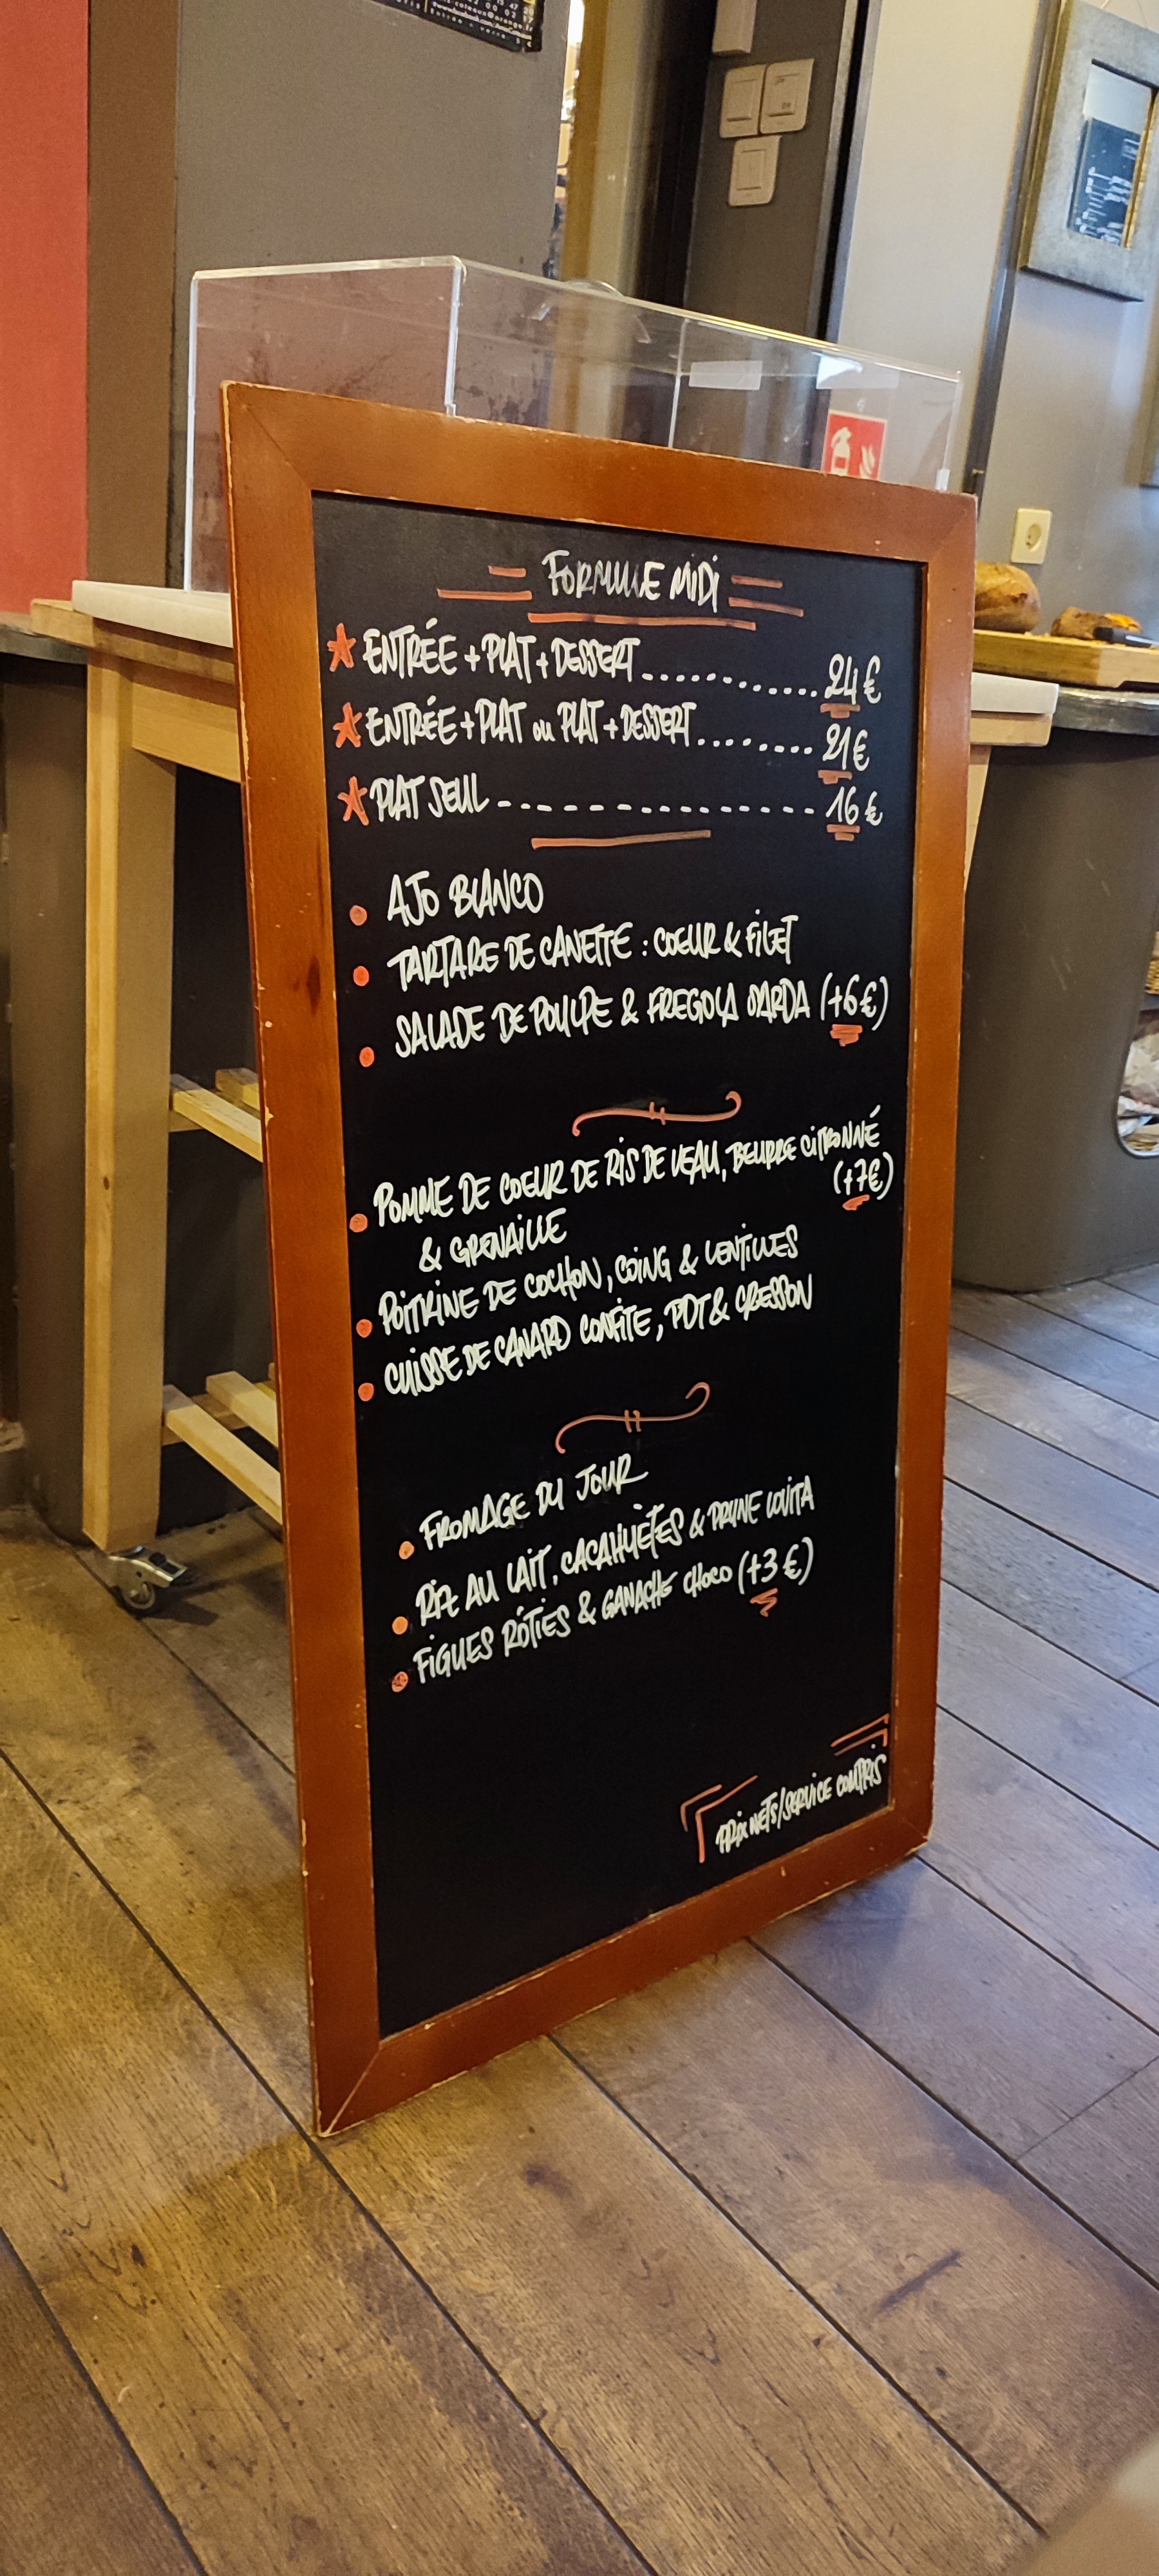 FORMULE MIDI
ENTRÉE + PLAT + DESSERT............24€
ENTRÉE + PLAT ou PLAT + DESSERT........21€
PLAT SEUL - - - - - - - - - - - - - - 16€
AJO BLANCO
TARTARE DE CANETTE : COEUR & FILET
SALADE DE POULPE & FREGOLA SARDA (+6€)
POMME DE COEUR DE RIS DE VEAU, BEURRE CITRONNÉ
(+7€)
& GRENAILLE
POITRINE DE COCHON, COING & LENTILLES
CUISSE DE CANARD CONFITE, PDT & CRESSON
FROMAGE DU JOUR
RIZ AU LAIT, CACAHUÈTES & PRUNE LOVITA
FIGUES RÔTIES & GANACHE CHOCO (+3€)
PRIX NETS/SERVICE COMPRIS